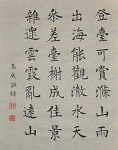 登臺可賞滌山雨
出海能觀潡水天
參差臺榭成佳景
雜遝雲霞亂遠山